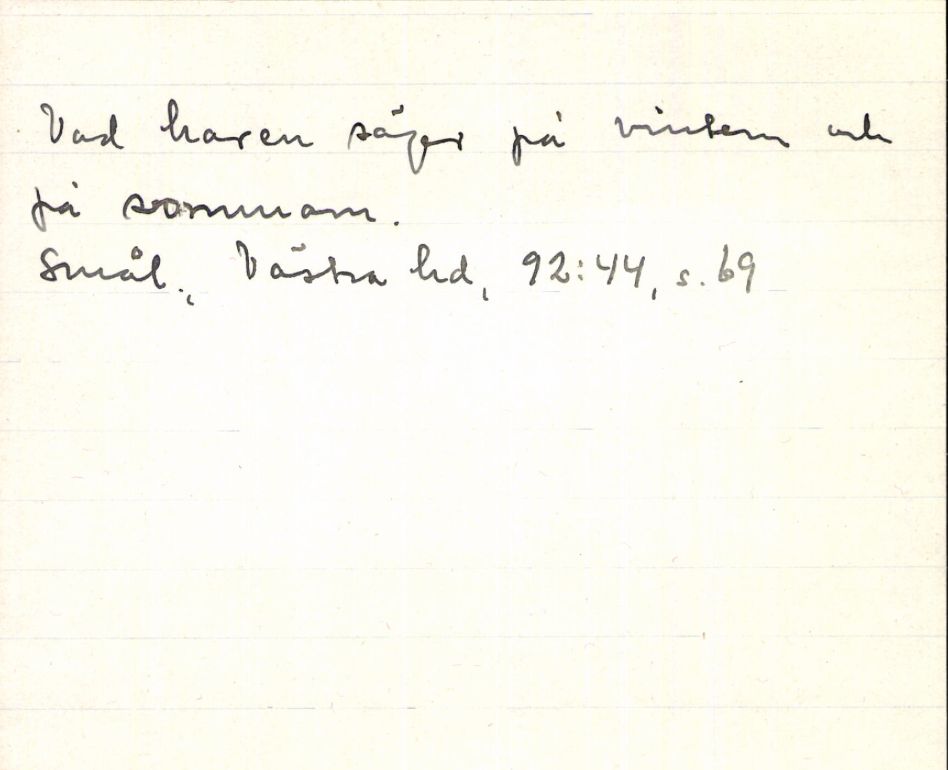 Vad haren säger på vintern och
på sommarn.
Smål., Västra hd, 92:44, s. 69